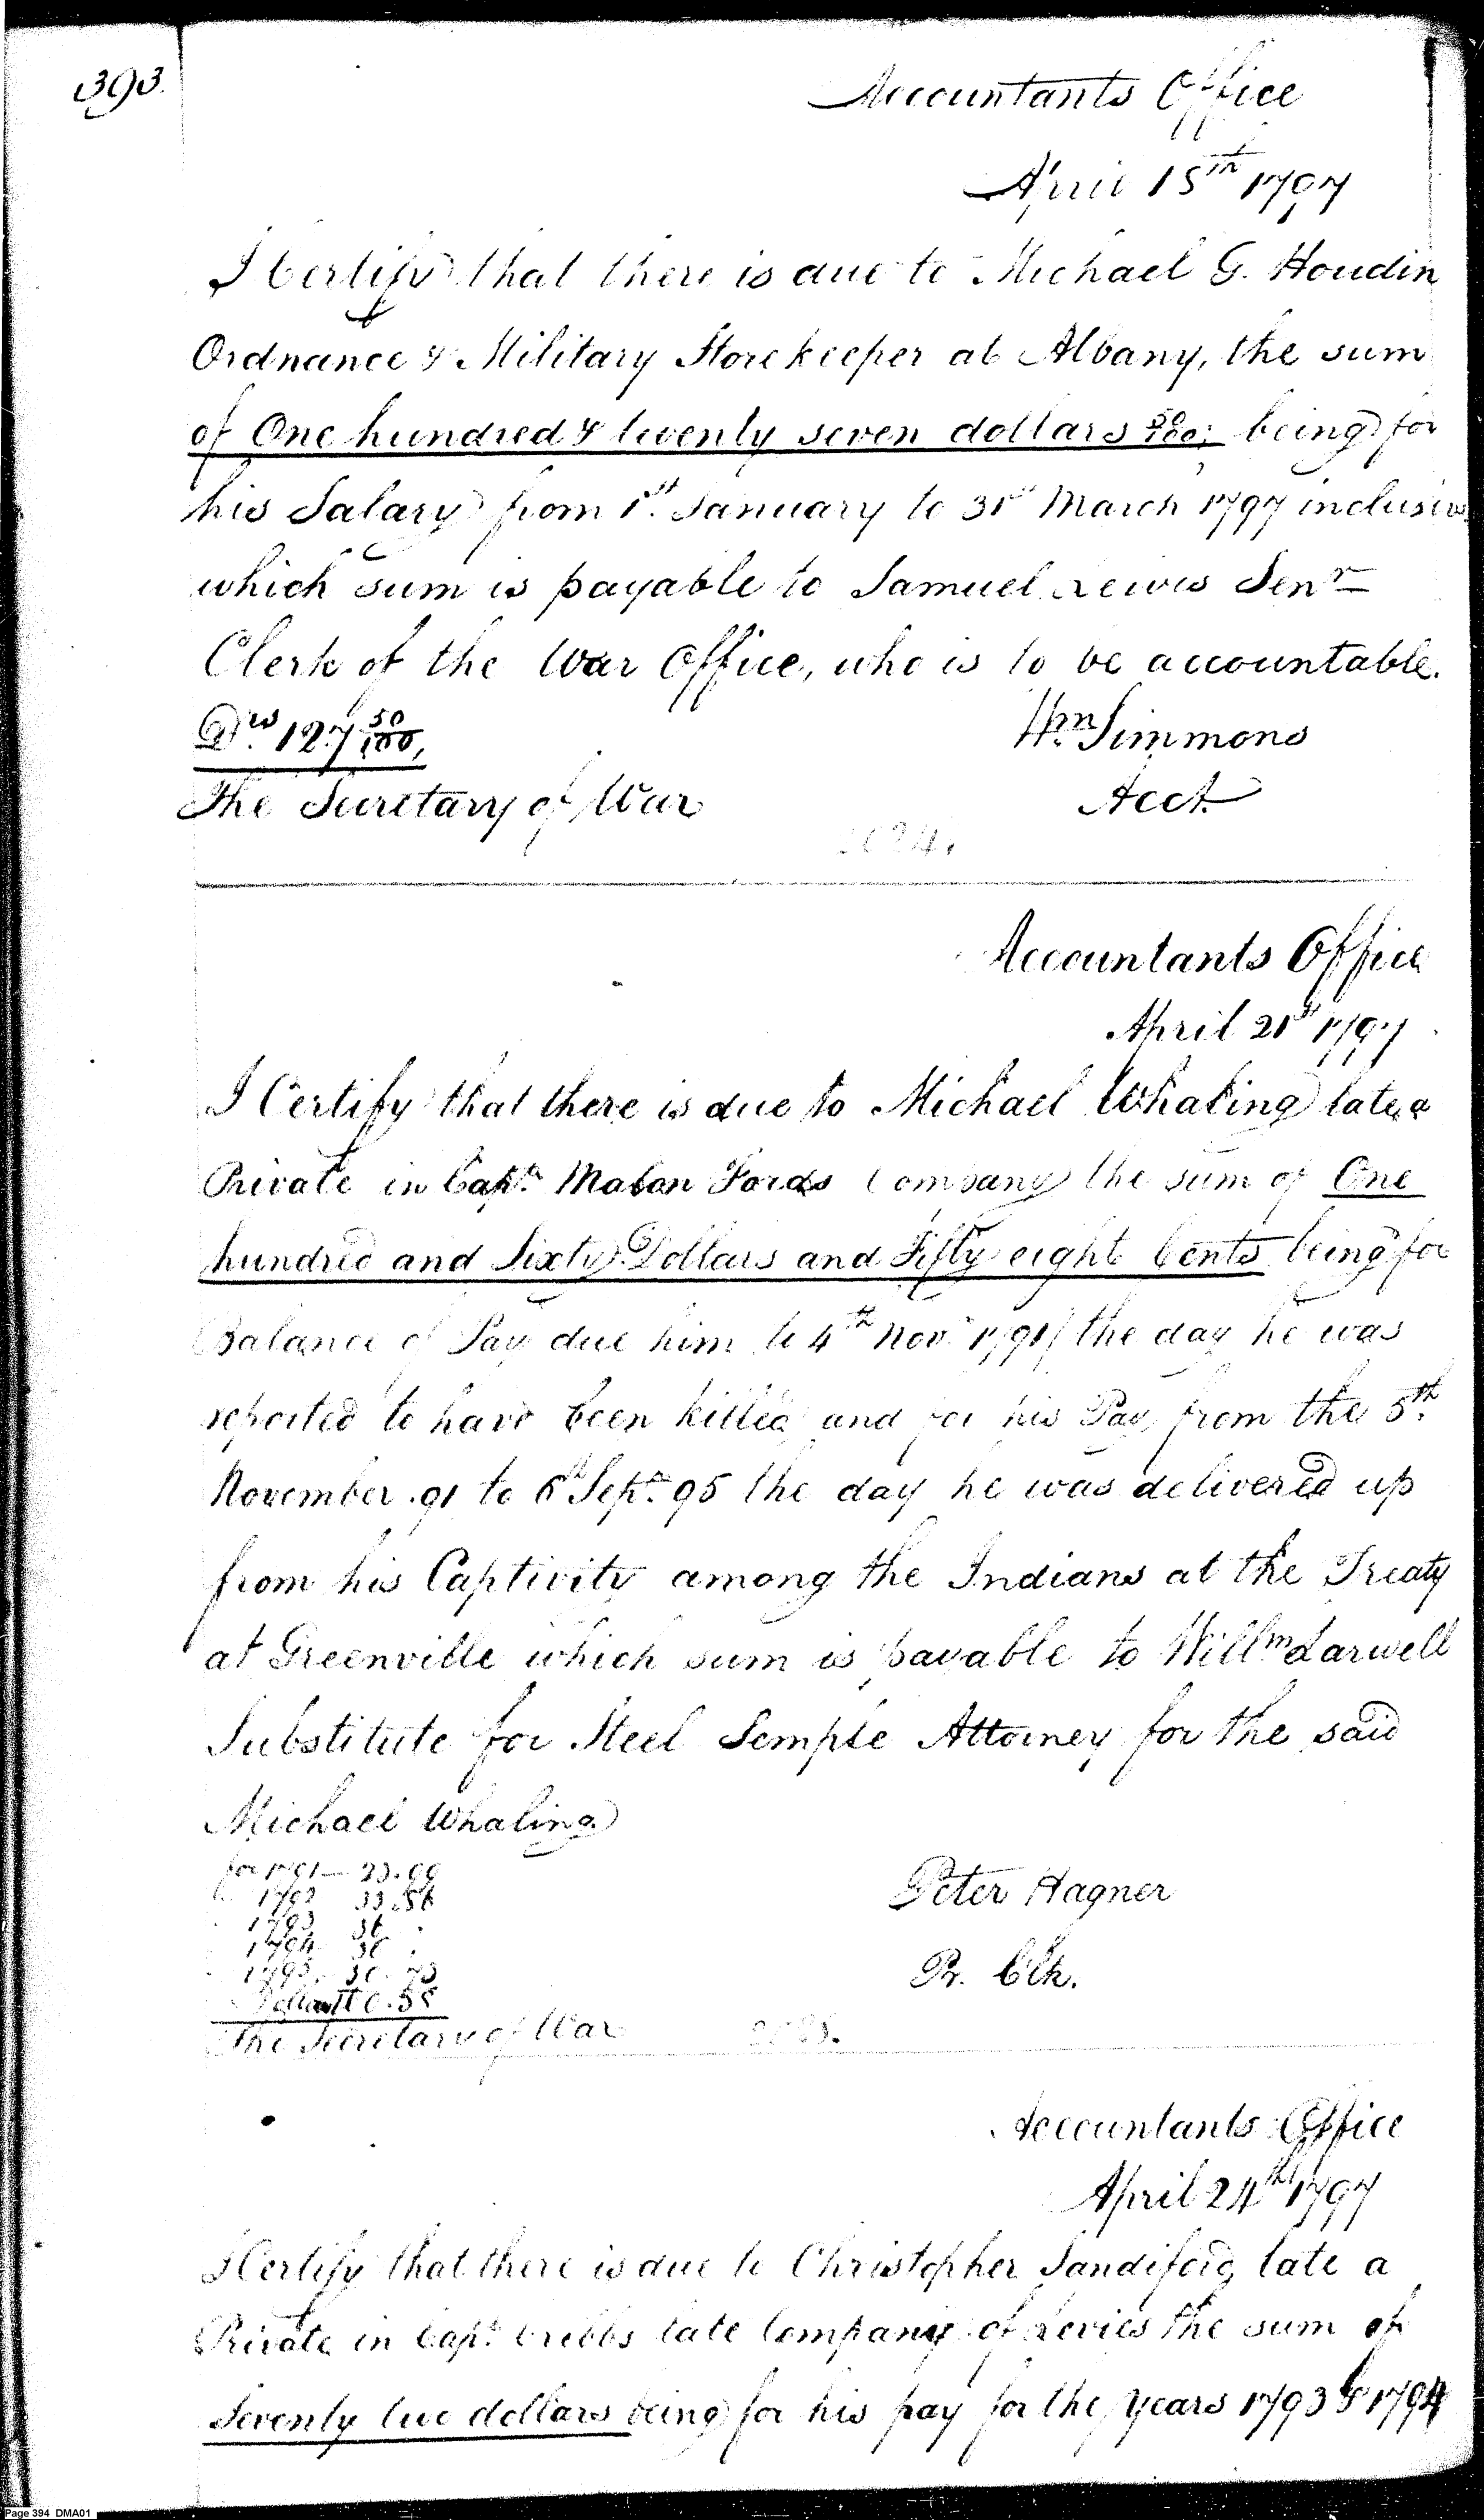 393.
Accountants Office
April 15th 1797
I Certify that there is due to Michael G. Houdin
Ordnance & Military Storekeeper at Albany, the sum
of One hundred & twenty seven dollars 50/100; being for
his Salary from 1st. January to 31st March 1797 inclusive
which sum is payable to Samuel Lewis Senr
Clerk of the War Office, who is to be accountable.
Drs. 127 50/100,
Wm. Simmons
The Secretary of War
Acct.
Accountants Office
April 21st 1797
I Certify that there is due to Michael Whaling late a
Private in Capt. Mabon Fords Company the sum of One
hundred and Sixty Dollars and Fifty eight Cents being for
Balance of Pay due him to 4th Novr 1791 the day he was
reported to have been killed and for his Pay from the 5th.
November 91 to 6th Sepr. 95 the day he was delivered up
from his Captivity among the Indians at the Treaty
at Greenville which sum is payable to Willm. Larwell
Substitute for Steel Semple Attorney for the said
Michael Whaling
for 1791
1792 33.56
Peter Hagner
1793 36
1794 36
1795. 30.73
Pr. Clk.
The Secretary of War
Accountants Office
April 24th 1797
I Certify that there is due to Christopher Sandiford, late a
Private in Capt. Cribbs late Company of Levies the sum of
Seventy two dollars being for his pay for the Years 1793 & 1794
Page 394 DMA01